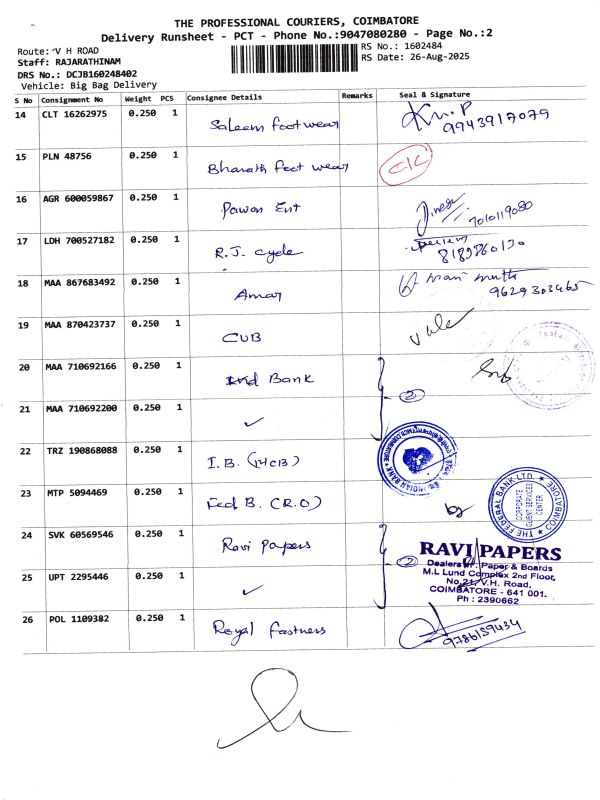 THE PROFESSIONAL COURIERS, COIMBATORE
Delivery Runsheet - PCT - Phone No.:9047080280 - Page No.:2
Route: V H ROAD
Staff: RAJARATHINAM
DRS No.: DCJB160248402
Vehicle: Big Bag Delivery
RS No.: 1602484
RS Date: 26-Aug-2025
S No Consignment No Weight PCS Consignee Details Remarks Seal & Signature
14 CLT 16262975 0.250 1 Saleem footwear
9943917079
15 PLN 48756 0.250 1 Bharath foot wear
16 AGR 600059867 0.250 1 Pawan Ent Dinesh
7010119080
17 LDH 700527182 0.250 1 R.J. cycle
8189860130
18 MAA 867683492 0.250 1 Amar mari muthu
9629303465
19 MAA 870423737 0.250 1 CUB
20 MAA 710692166 0.250 1 Ind Bank
2
21 MAA 710692200 0.250 1 ✓
22 TRZ 190868088 0.250 1 I.B. (MCB)
INDIAN BANK
23 MTP 5094469 0.250 1 Fed B. (R.O)
THE FEDERAL BANK LTD. COIMBATORE
CORPORATE
CLIENT SERVICES
CENTER
24 SVK 60569546 0.250 1 Ravi papers
2
RAVI PAPERS
Dealers in: Paper & Boards
M.L Lund Complex 2nd Floor,
No.21, V.H. Road,
COIMBATORE - 641 001.
Ph : 2390662
25 UPT 2295446 0.250 1 ✓
26 POL 1109382 0.250 1 Royal fastners
9786159434